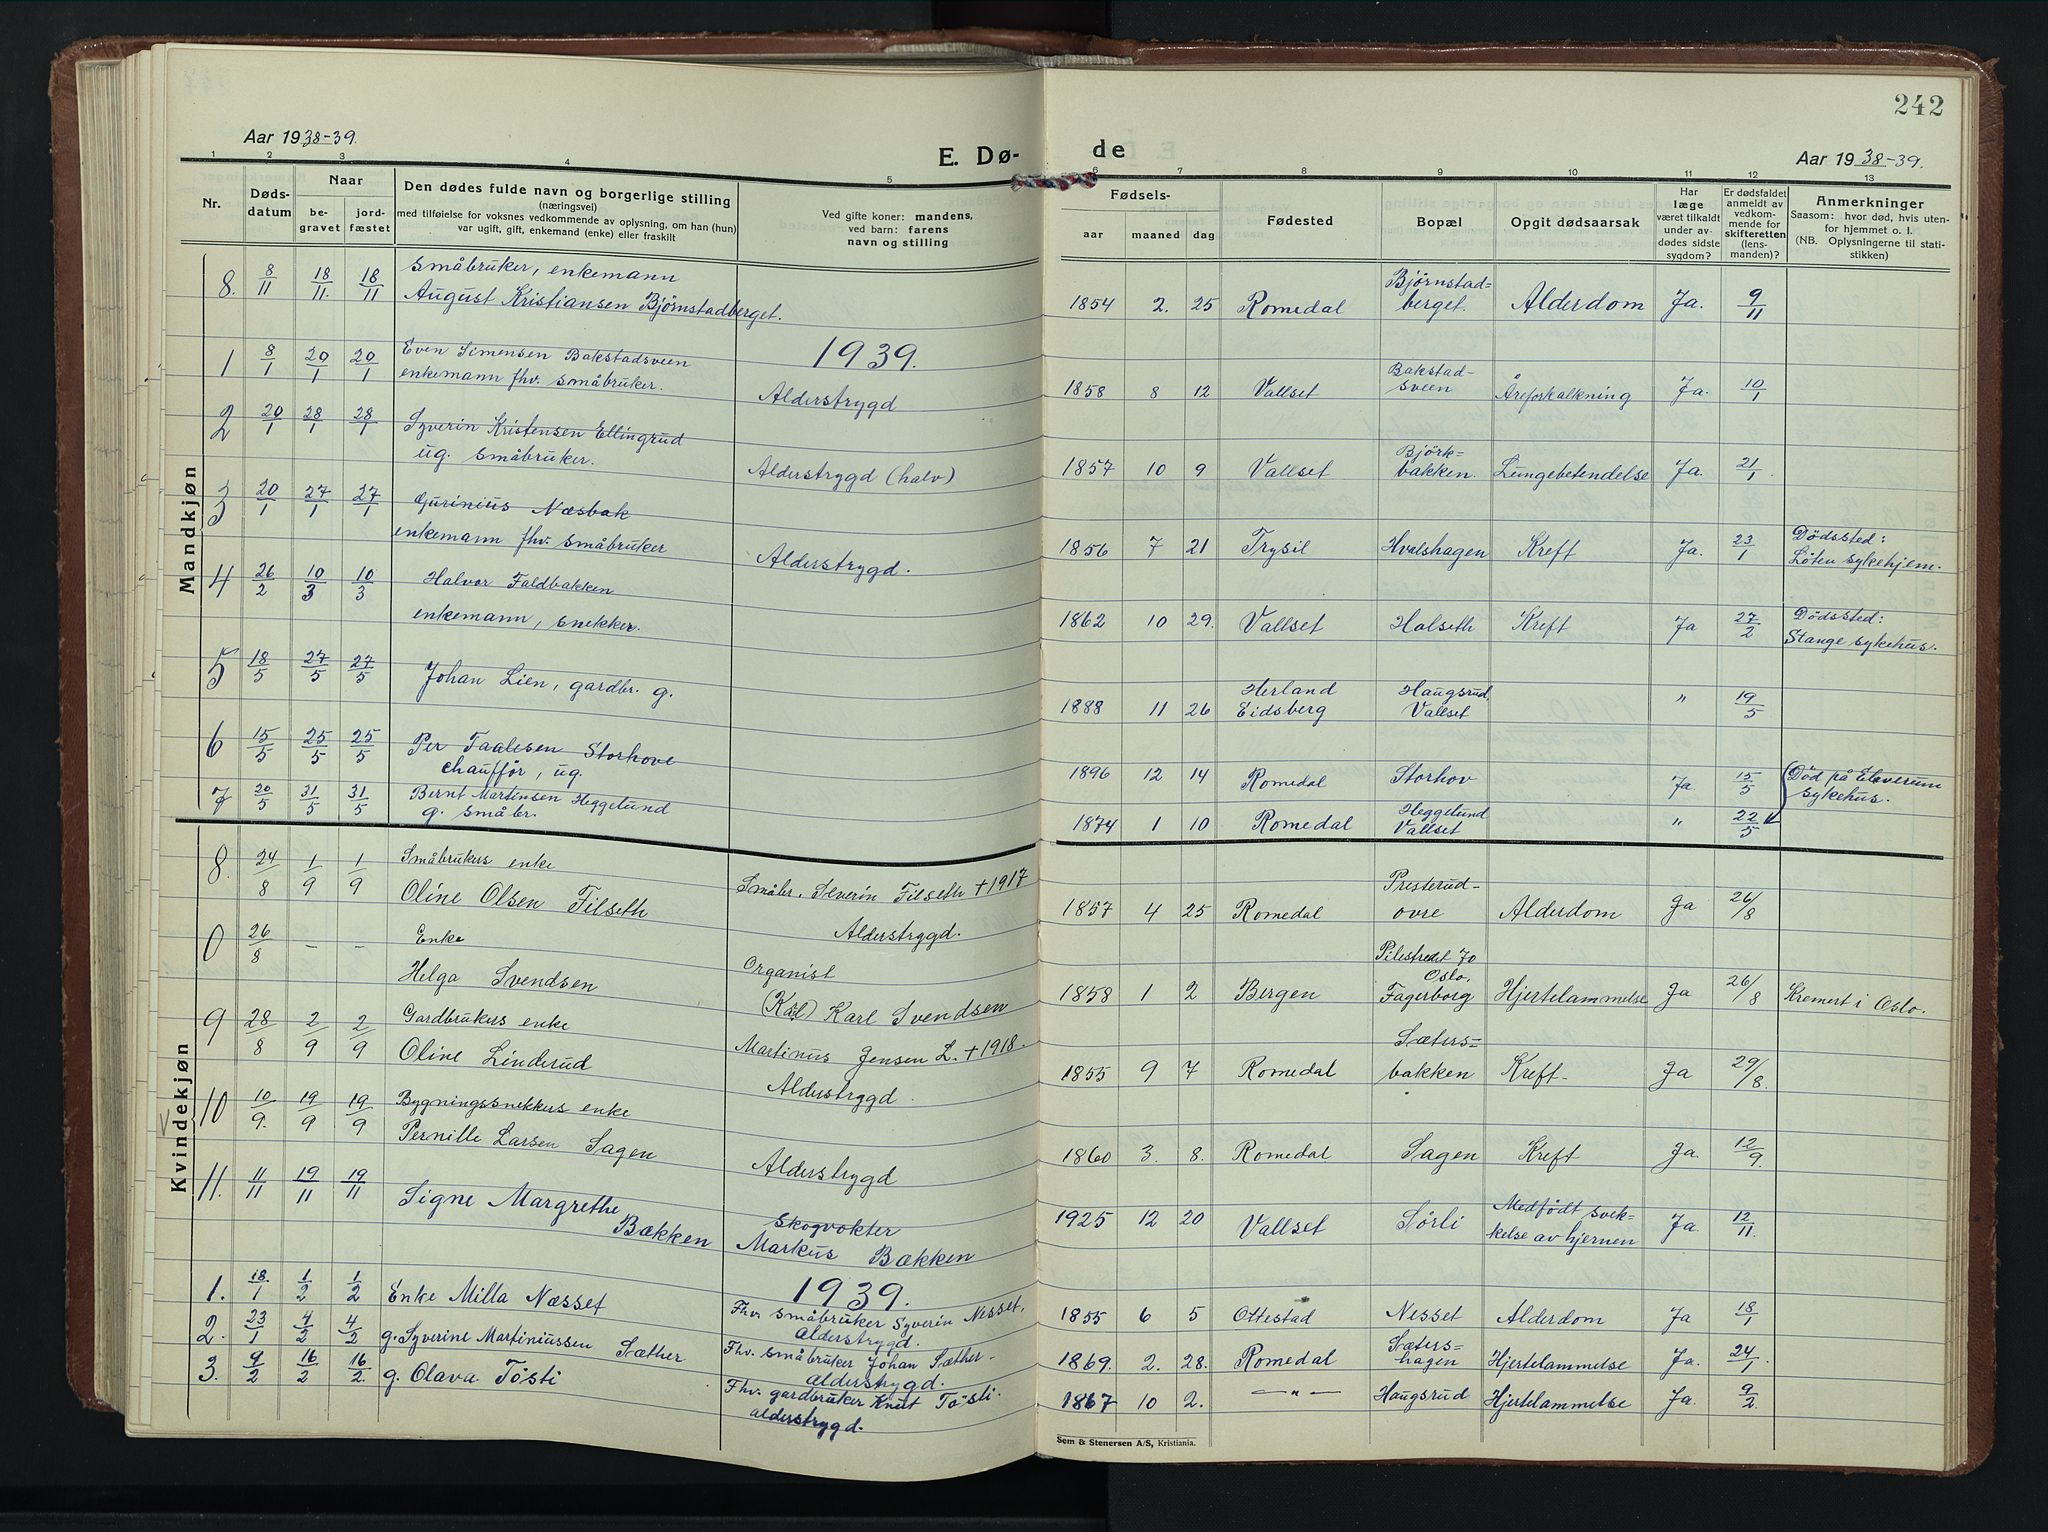 242
Aar 1938-39.
E. Dø-
de
Aar 1938-39.
1 2 3 4 5 6 7 8 9 10 11 12 13
Nr.
Døds-
datum
Naar
be-
gravet
jord-
fæstet
Den dødes fulde navn og borgerlige stilling
(næringsvei)
med tilføielse for voksnes vedkommende av oplysning, om han (hun)
var ugift, gift, enkemand (enke) eller fraskilt
Ved gifte koner: mandens,
ved barn: farens
navn og stilling
Fødsels-
aar maaned dag
Fødested
Bopæl
Opgit dødsaarsak
Har
læge
været tilkaldt
under av-
dødes sidste
sygdom?
Er dødsfaldet
anmeldt av
vedkom-
mende for
skifteretten
(lens-
manden)?
Anmerkninger
Saasom: hvor død, hvis uten-
for hjemmet o. l.
(NB. Oplysningerne til stati-
stikken)
Mandkjøn
småbruker, enkemann Bjørnstad-
8. 8/11 18/11. 18/11 August Kristiansen Bjørnstadberget. 1854 2. 25 Romedal berget. Alderdom Ja. 9/11
1939.
1 8/1 20/1 20/1 Even Simensen Bakstadsveen Bakstad-
enkemann fhv. småbruker. Alderstrygd 1858 8 12 Vallset sveen Åreforkalkning Ja. 10/1
2 20/1 28/1 28/1 Syverin Kristensen Ellingrud Bjørk-
ug. småbruker. Alderstrygd (halv) 1857 10 9 Vallset bakken. Lungebetendelse Ja. 21/1
3 20/1 27/1 27/1 Gurinius Næsbak Dødssted:
enkemann fhv. småbruker Alderstrygd. 1856 7 21 Trysil Hvalshagen Kreft Ja. 23/1 Løten sykehjem.
4 26/2 10/3 10/3 Halvor Faldbakken Dødssted:
enkemann, snekker. 1862 10 29. Vallset Holseth Kreft Ja 27/2 Stange sykehus.
5 18/5 27/5 27/5 Johan Lien, gardbr. g. Herland Haugsrud,
1888 11 26 Eidsberg Vallset " 19/5
6 15/5 25/5 25/5 Per Taalesen Storhove
chauffør, ug. 1896 12 14 Romedal Storhov Ja. 15/5 Død på Elverum
sykehus.
7 20/5 31/5 31/5 Bernt Martinsen Heggelund Heggelund
g. småbr. 1874 1 10 Romedal Vallset " 22/5
Kvindekjøn
8. 24/8 1/9 1/9 Småbrukers enke Presterud-
Oline Olsen Filseth Småbr. Severin Filseth + 1917 1857 4 25 Romedal ovre Alderdom Ja 26/8
Alderstrygd.
0 26/8 - - Enke Organist Pilestredet 70
Oslo,
Helga Svendsen (Kal) Karl Svendsen 1858 1 2 Bergen Fagerborg Hjertelammelse Ja 26/8 Kremert i Oslo.
9 28/8 2/9 2/9 Gardbrukers enke Martinus Jensen L. + 1918. Sæters=
Oline Linderud Alderstrygd. 1855 9 7 Romedal bakken Kreft Ja 29/8.
10 10/9. 19/9 19/9 Bygningssnekkers enke
Pernille Larsen Sagen Alderstrygd 1860 3. 8. Romedal Sagen Kreft Ja. 12/9.
11. 11/11 19/11 19/11 Signe Margrethe Skogvokter Medfødt svek-
Bækken Markus Bækken 1925 12 20 Vallset Sørli kelse av hjernen Ja. 12/11.
1939.
1. 18/1 1/2 1/2 Enke Milla Næsset Fhv. småbruker Syverin Nesset, 1855 6 5 Ottestad Nesset Alderdom Ja 18/1
alderstrygd.
2. 23/1 4/2 4/2 g. Syverine Martiniussen Sæther Fhv. småbruker Johan Sæther - Sæters=
alderstrygd. 1869. 2. 28. Romedal hagen Hjertelammelse Ja. 24/1.
3. 9/2 16/2 16/2. g. Olava Tösti Fhv. gardbruker Knut Tösti. 1867 10 2. —"— Haugsrud Hjertelammelse Ja. 9/2.
alderstrygd.
Sem & Stenersen A/S, Kristiania.